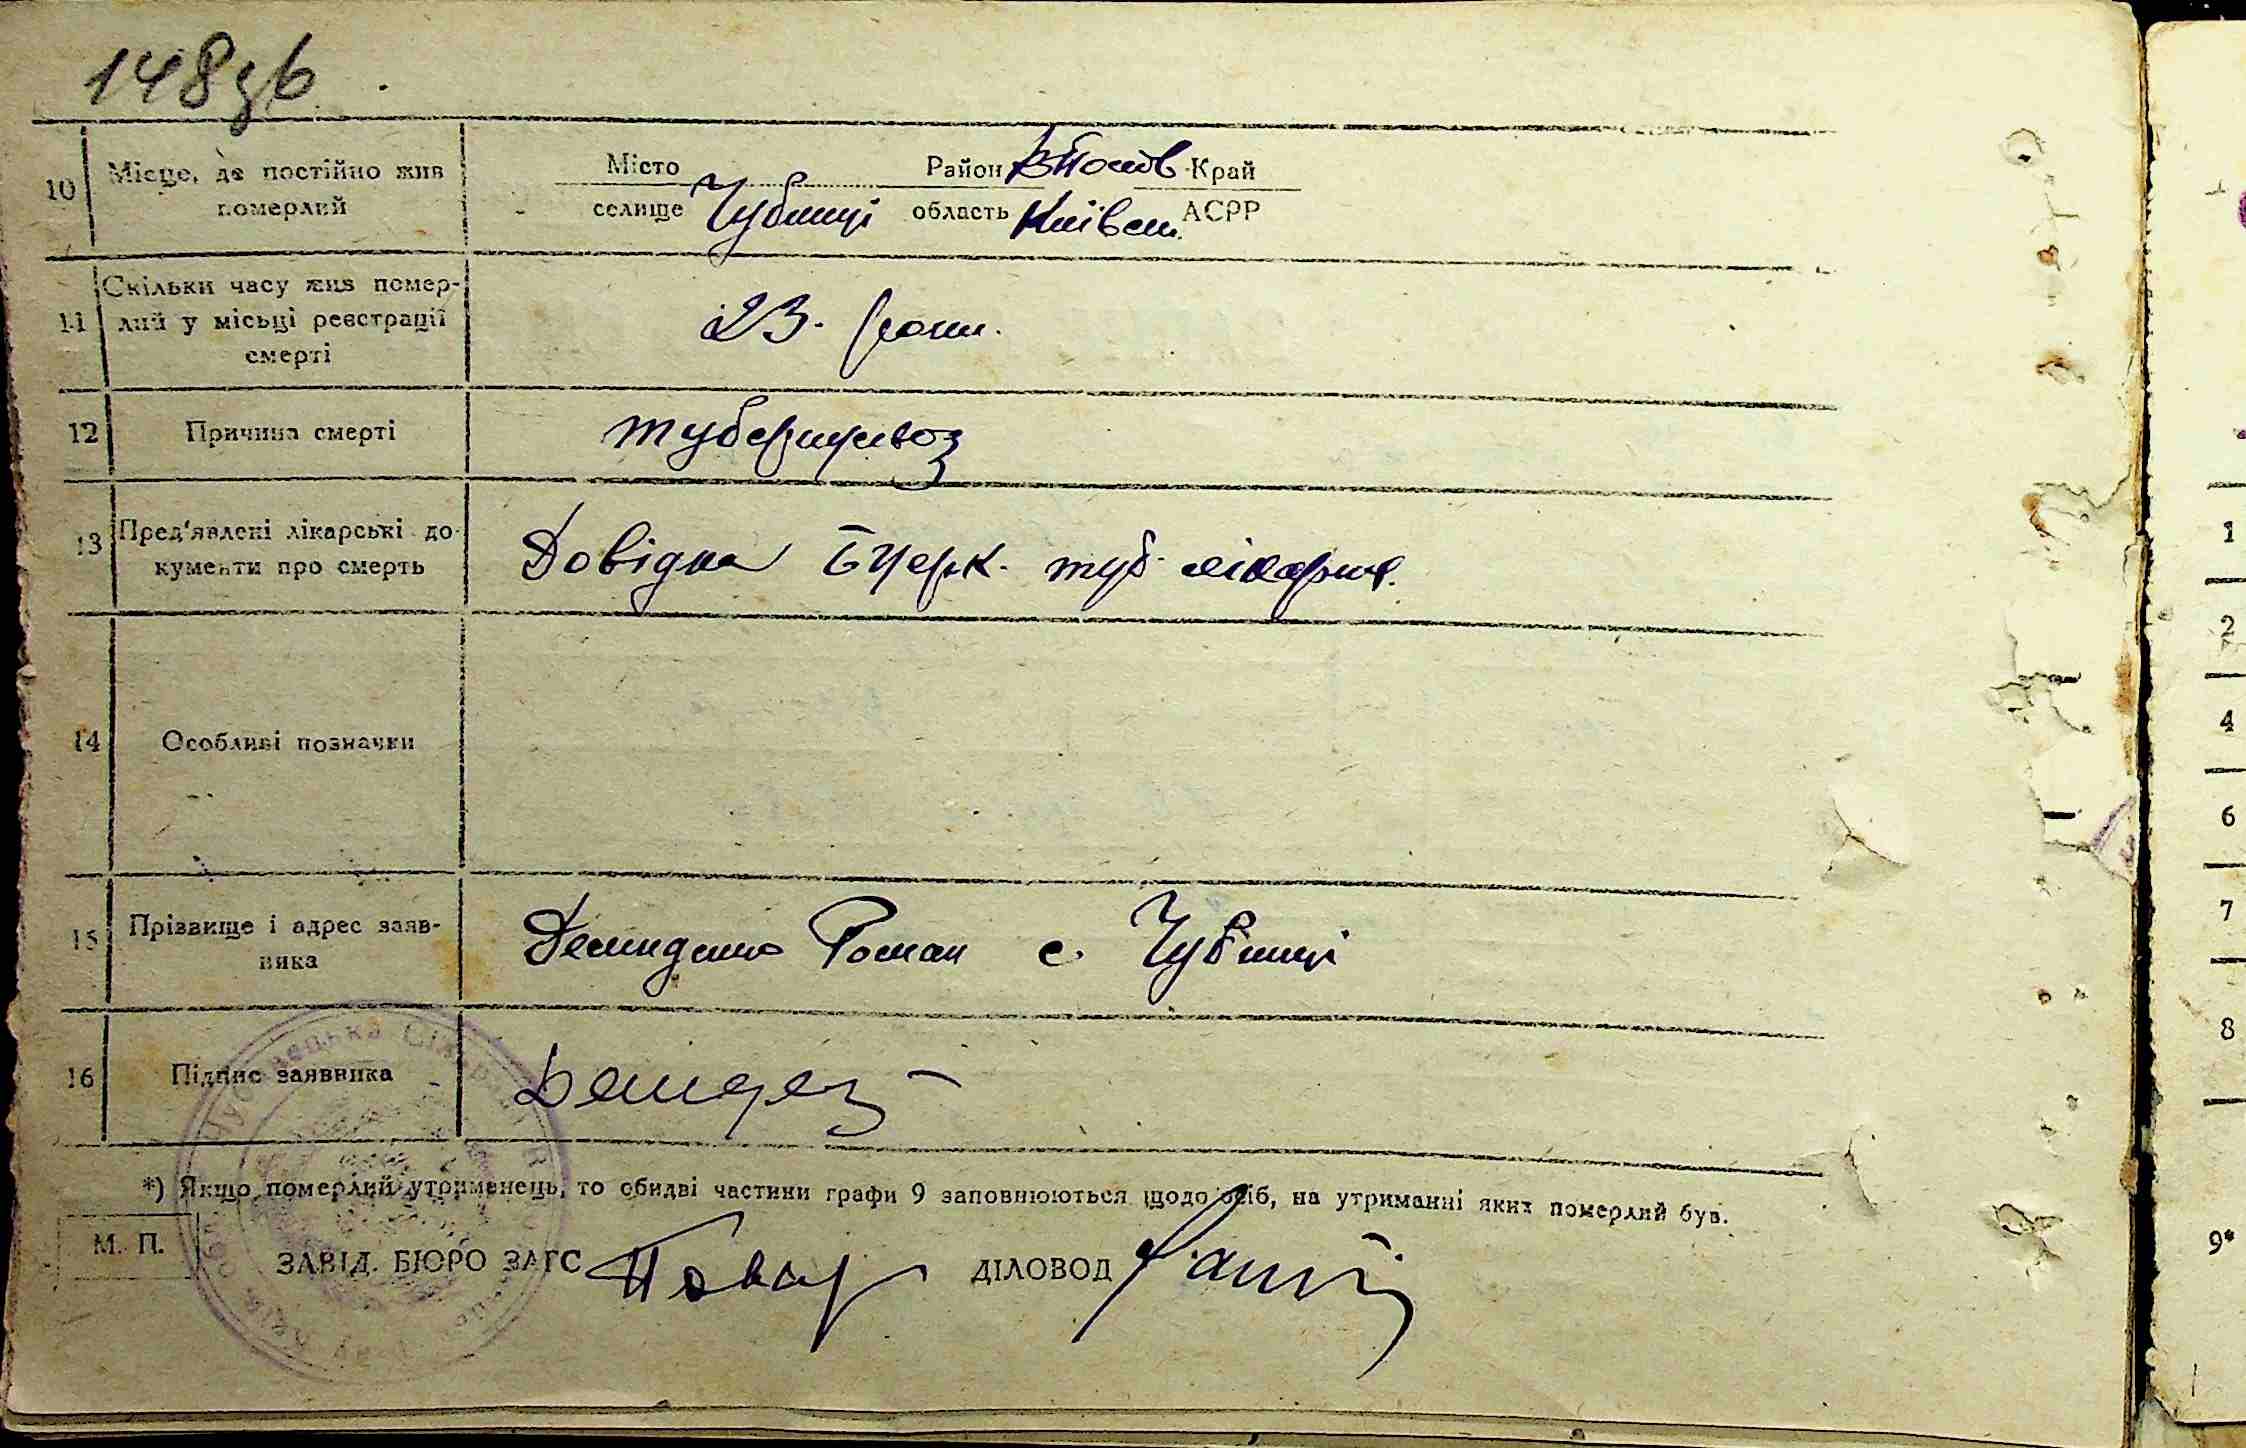 148 зв
10 Місце, де постійно жив померлий
Місто селище Чубинці Район В Полов Край область Київськ. АСРР
11 Скільки часу жив помер-
лий у місьці реєстрації
смерті
23. роки.
12 Причина смерті туберкульоз
13 Пред'явлені лікарські до-
кументи про смерть
Довідка Бцерк. туб. лікарні.
14 Особливі позначки
15 Прізвище і адрес заяв-
ника
Демиденко Роман с. Чубинці
16 Підпис заявника
*) Якщо померлий утриманець, то обидві частини графи 9 заповнюються щодо осіб, на утриманні яких померлий був.
М. П.
ЗАВІД. БЮРО ЗАГС ДІЛОВОД
1
2
4
6
7
8
9*